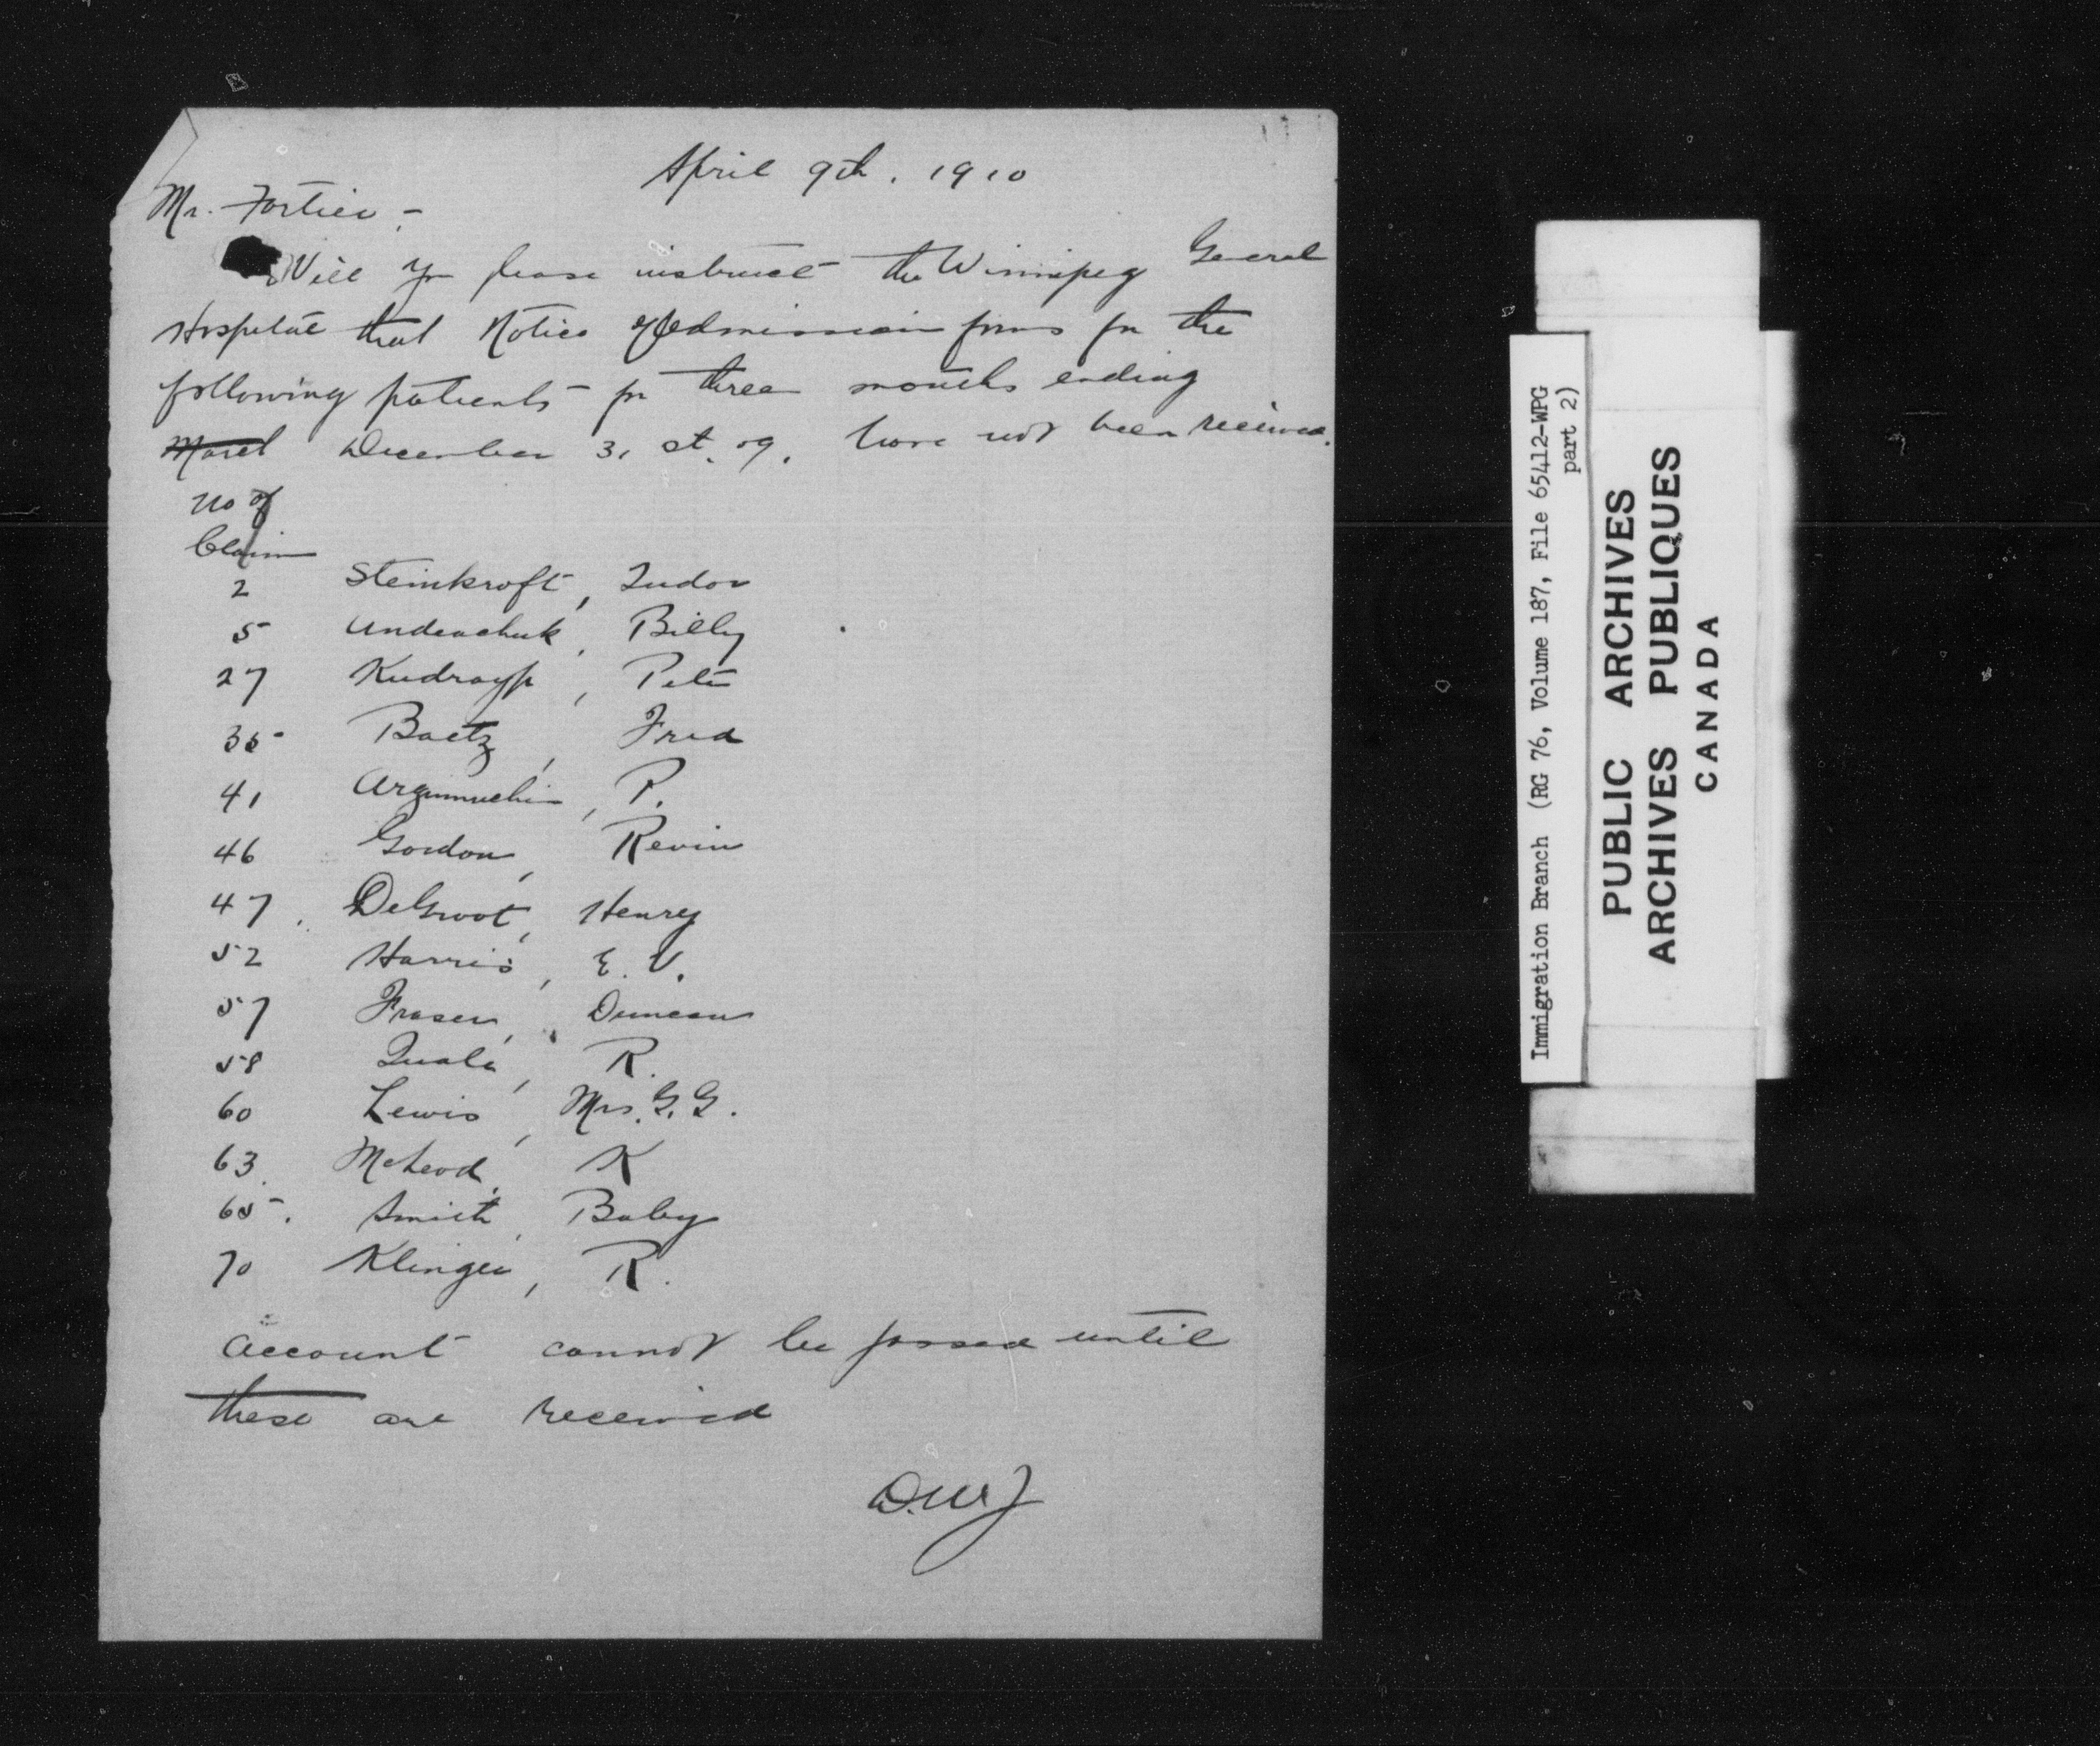 April 9th. 1910
Mr. Fortier -
Will you please instruct the Winnipeg General
Hospital that Notice of Admission forms for the
following patients for three months ending
March December 31st. 09. have not been received.
No of
Claim
2 Steinkroft, Tudor
5 Undenchuk, Billy
27 Kudrayp, Pete
35 Baetz, Fred
41 P.
46 Gordon, Revin
47. DeGroot, Henry
52 Harris, E. V.
57 Fraser, Duncan
58 R.
60 Lewis, Mrs. G. G.
63. McLeod, K
65. Smith, Baby
70 Klinger, R.
Account cannot be passed until
these are received
Immigration Branch (RG 76, Volume 187, File 65412-WPG
part 2)
PUBLIC ARCHIVES
ARCHIVES PUBLIQUES
CANADA